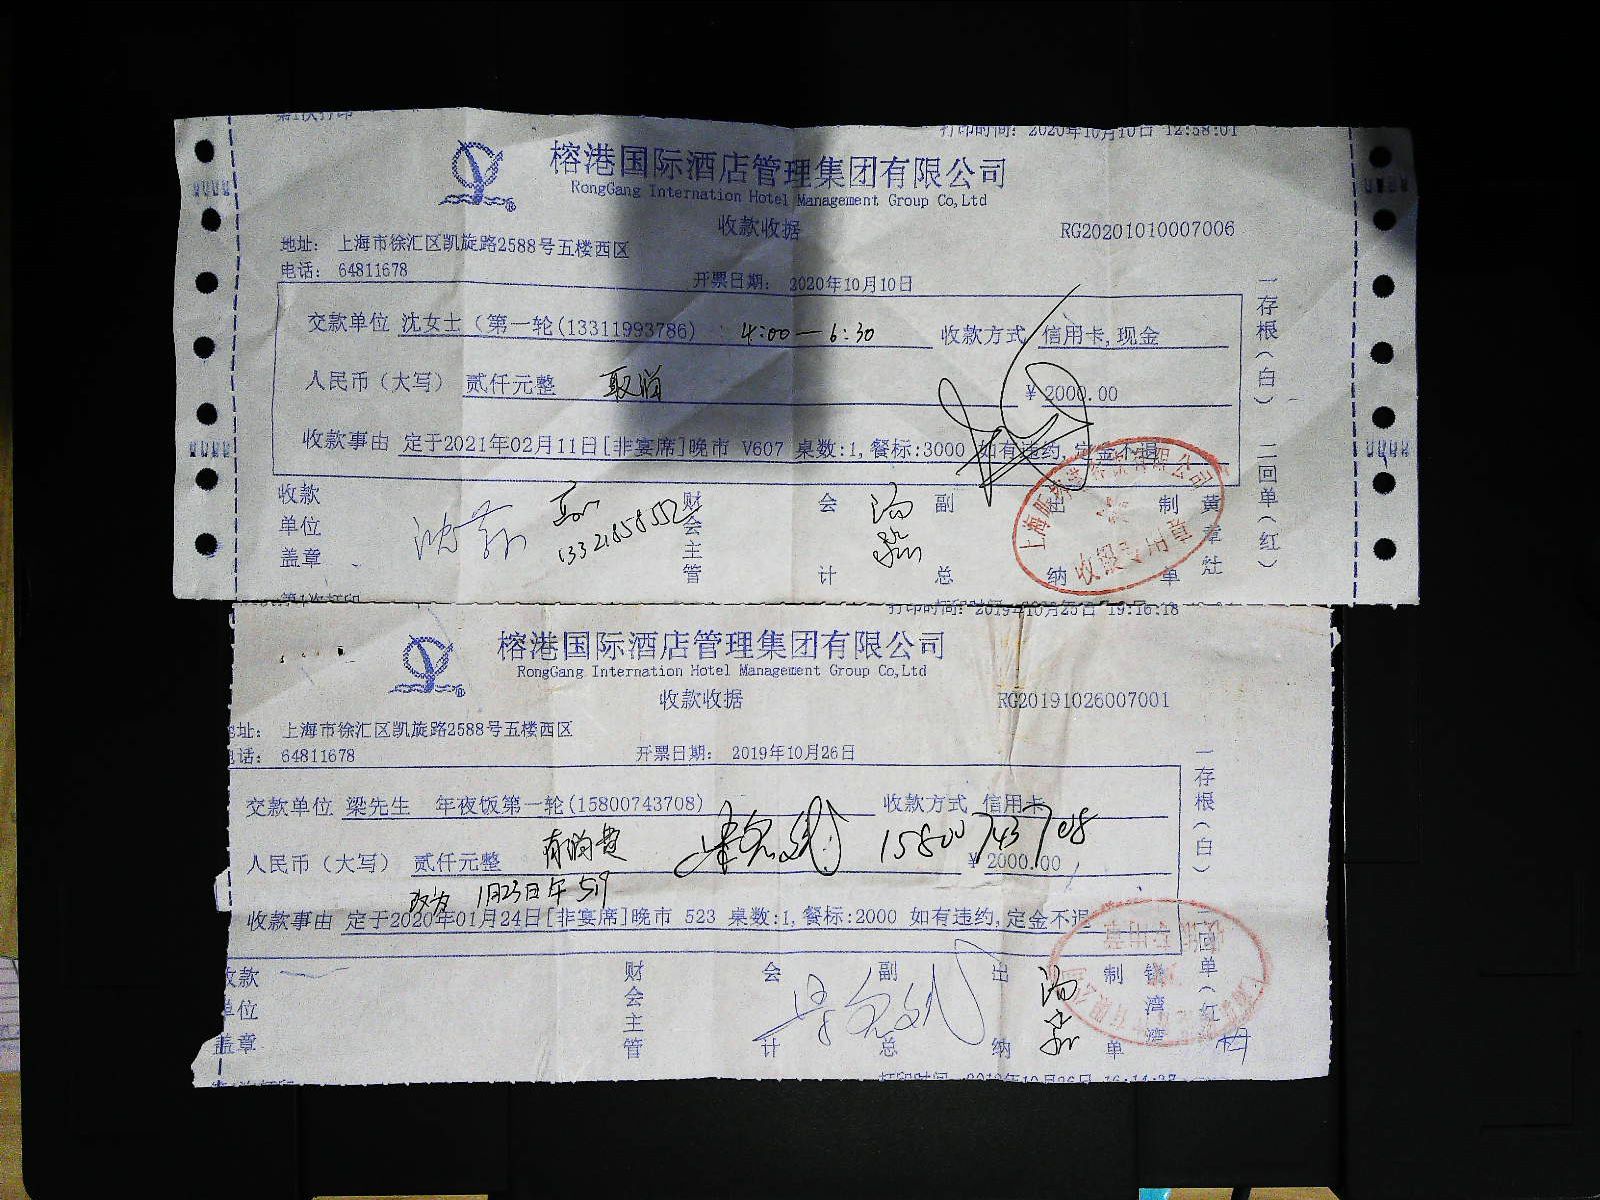 打印时间: 2020年10月10日 12:58:01
榕港国际酒店管理集团有限公司
RongGang Internation Hotel Management Group Co,Ltd
收款收据
RG20201010007006
地址: 上海市徐汇区凯旋路2588号五楼西区
电话: 64811678
开票日期: 2020年10月10日
交款单位 沈女士 (第一轮(13311993786) 4:00—6:30 收款方式 信用卡,现金
人民币(大写) 贰仟元整 取消 ¥2000.00
收款事由 定于2021年02月11日[非宴席]晚市 V607 桌数:1,餐标:3000 如有违约,定金不退
一存根(白) 二回单(红)
收款单位盖章
财会主管
会计
副总
出纳
制单
黄章灶
收银专用章
打印时间: 2019年10月25日 19:16:18
榕港国际酒店管理集团有限公司
RongGang Internation Hotel Management Group Co,Ltd
收款收据
RG20191026007001
地址: 上海市徐汇区凯旋路2588号五楼西区
电话: 64811678
开票日期: 2019年10月26日
交款单位 梁先生 年夜饭第一轮(15800743708) 收款方式 信用卡
15800743708
人民币(大写) 贰仟元整 有消费 ¥2000.00
改为 1月23日午 519
收款事由 定于2020年01月24日[非宴席]晚市 523 桌数:1,餐标:2000 如有违约,定金不退
一存根(白) 二回单(红)
收款单位盖章
财会主管
会计
副总
出纳
制单